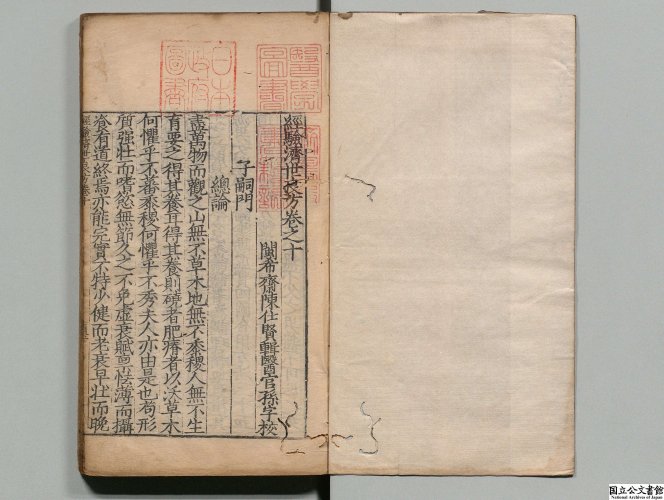 經驗濟世良方卷之十
閩希齋陳仕賢輯醫官孫字校
子嗣門
總論
盡萬物而觀之山無不草木地無不黍稷人無不生
育要之得其養耳得其養則磽者肥瘠者以沃草木
何懼乎不蕃黍稷何懼乎不秀夫人亦由是也苟形
質强壯而嗜慾無節久之不免虛衰賦禀怯薄而攝
養有道終焉亦能完實不特少健而老衰早壯而晚
經驗濟世良方卷十
日本
政府
圖書
國立公文書館
National Archives of Japan